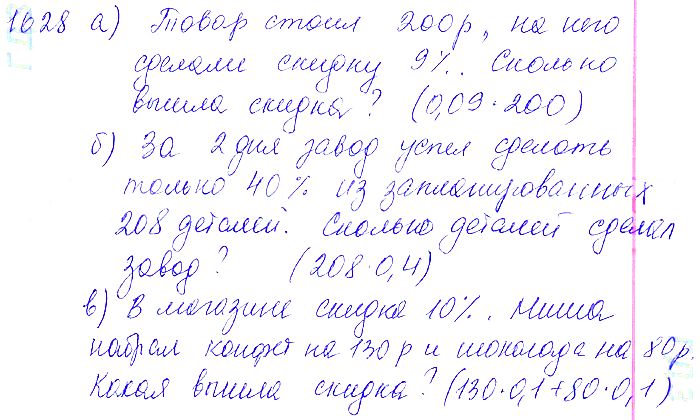 1628 а) Товар стоил 200р, на него
сделали скидку 9%. Сколько
вышла скидка? (0,09·200)
б) За 2 дня завод успел сделать
только 40% из запланированных
208 деталей. Сколько деталей сделал
завод? (208·0,4)
в) В магазине скидка 10%. Миша
набрал конфет на 130р и шоколада на 80р.
Какая вышла скидка? (130·0,1+80·0,1)